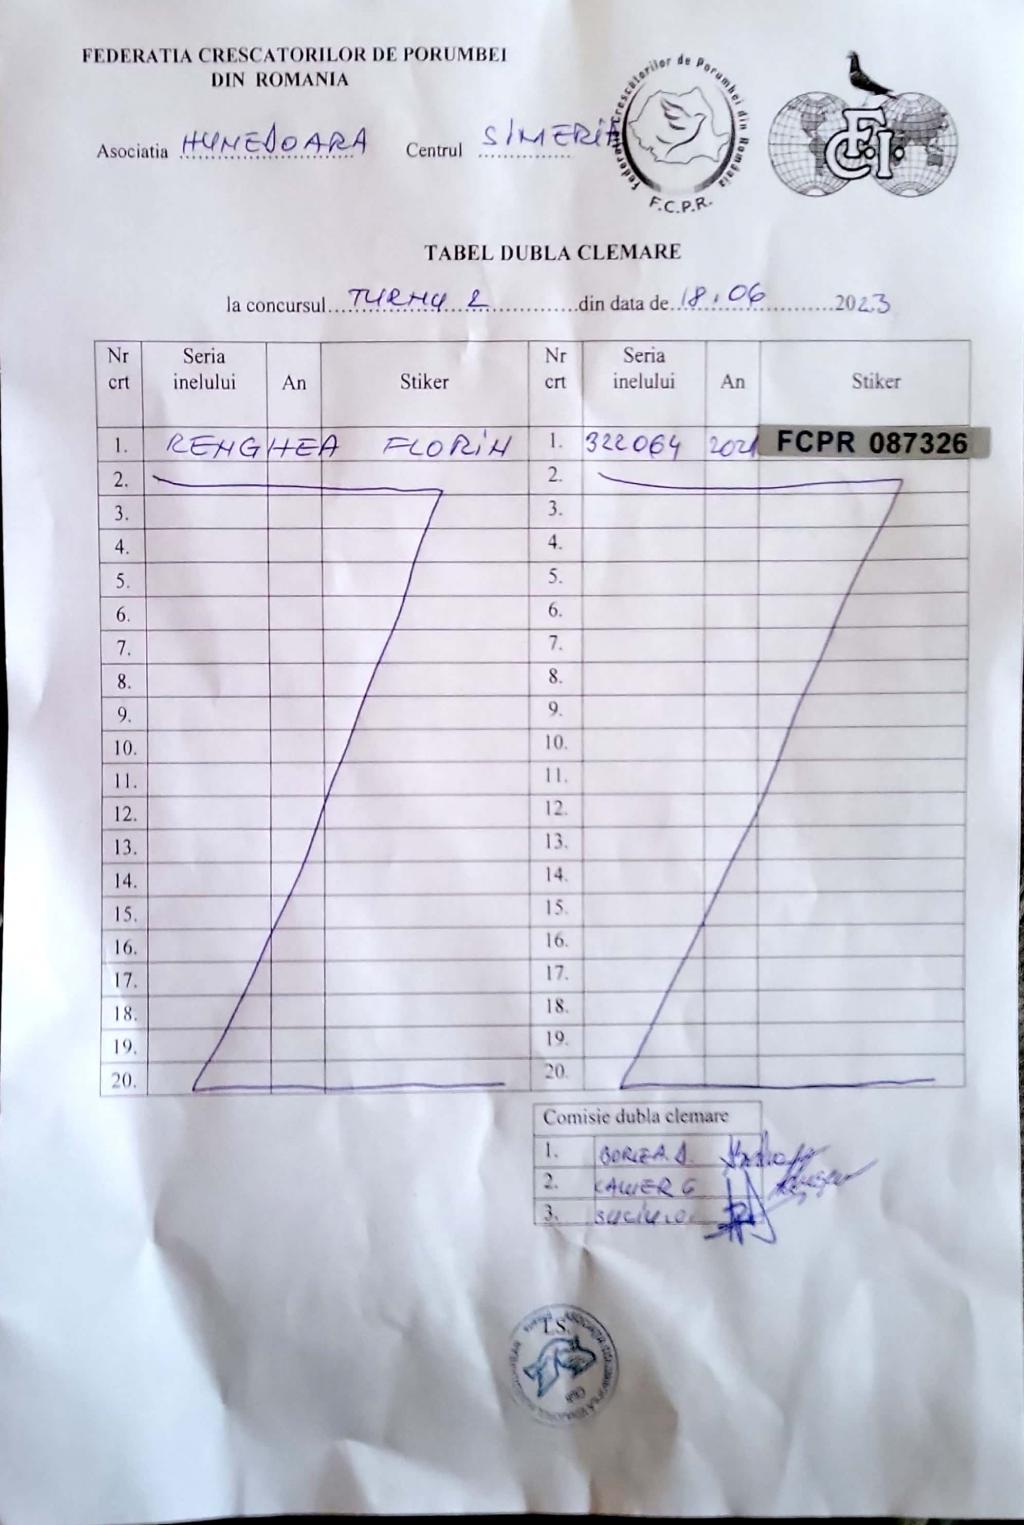 FEDERATIA CRESCATORILOR DE PORUMBEI
DIN ROMANIA
Federatia Crescătorilor de Porumbei din România
F.C.P.R.
FCI
Asociatia HUNEDOARA Centrul SIMERIA
TABEL DUBLA CLEMARE
la concursul TURNU 2 din data de 18.06 2023
Nr crt Seria inelului An Stiker Nr crt Seria inelului An Stiker
1. RENGHEA FLORIN 1. 322064 2021 FCPR 087326
2. 2.
3. 3.
4. 4.
5. 5.
6. 6.
7. 7.
8. 8.
9. 9.
10. 10.
11. 11.
12. 12.
13. 13.
14. 14.
15. 15.
16. 16.
17. 17.
18. 18.
19. 19.
20. 20.
Comisie dubla clemare
1. BORZA
2. G
3. SUCIU
L.S.